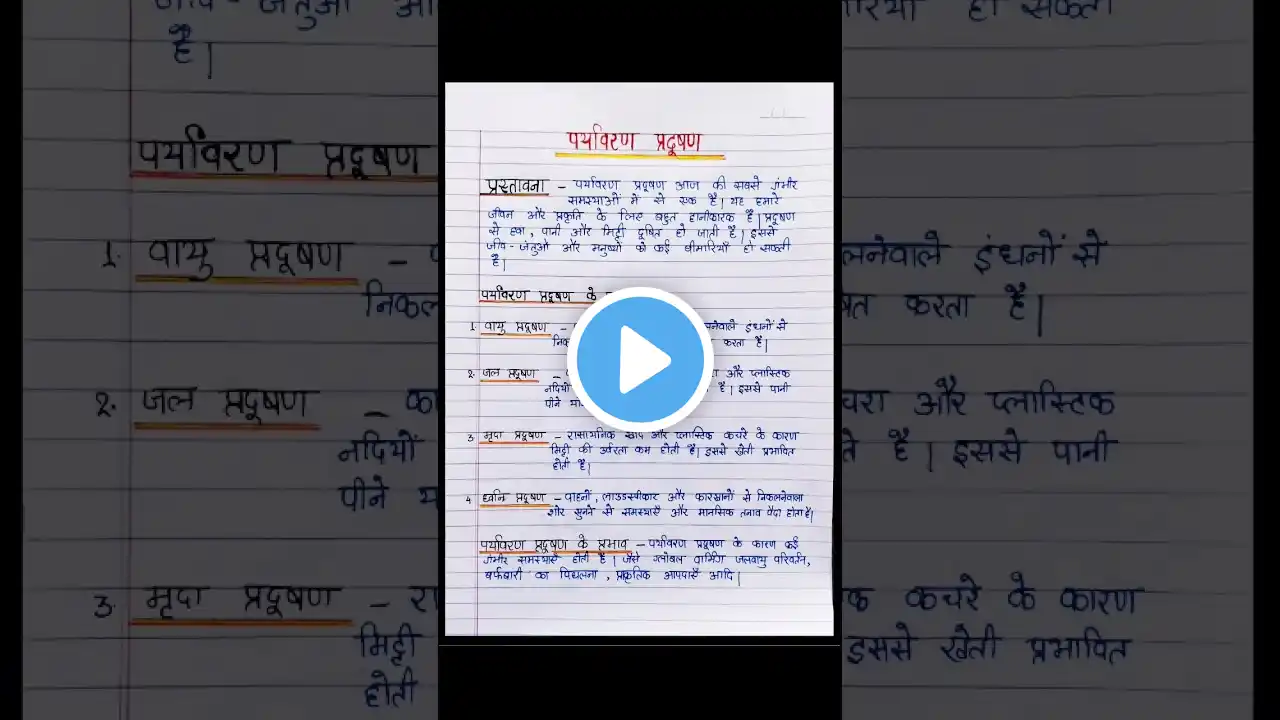 पर्यावरण प्रदूषण
प्रस्तावना – पर्यावरण प्रदूषण आज की सबसे गंभीर
समस्याओं में से एक है। यह हमारे
जीवन और प्रकृति के लिए बहुत हानीकारक है। प्रदूषण
से हवा, पानी और मिट्टी दूषित हो जाती है। इससे
जीव-जंतुओ और मनुष्यो को कई बीमारियाँ हो सकती
है।
पर्यावरण प्रदूषण के
1. वायु प्रदूषण – लनेवाले इंधनों से
निकल करता है।
2. जल प्रदूषण – का चरा और प्लास्टिक
नदियों ते है। इससे पानी
पीने
3. मृदा प्रदूषण – रासायनिक खाद और प्लास्टिक कचरे के कारण
मिट्टी की उर्वरता कम होती है। इससे खेती प्रभावित
होती है।
4. ध्वनि प्रदूषण – वाहनों, लाउडस्पीकार और कारखानों से निकलनेवाला
शोर सुनने से समस्याएँ और मानसिक तनाव पैदा होता है।
पर्यावरण प्रदूषण के प्रभाव – पर्यावरण प्रदूषण के कारण कई
गंभीर समस्याएँ होती है। जैसे ग्लोबल वार्मिंग जलवायु परिवर्तन,
बर्फबारी का पिघलना, प्राकृतिक आपदाएँ आदि।